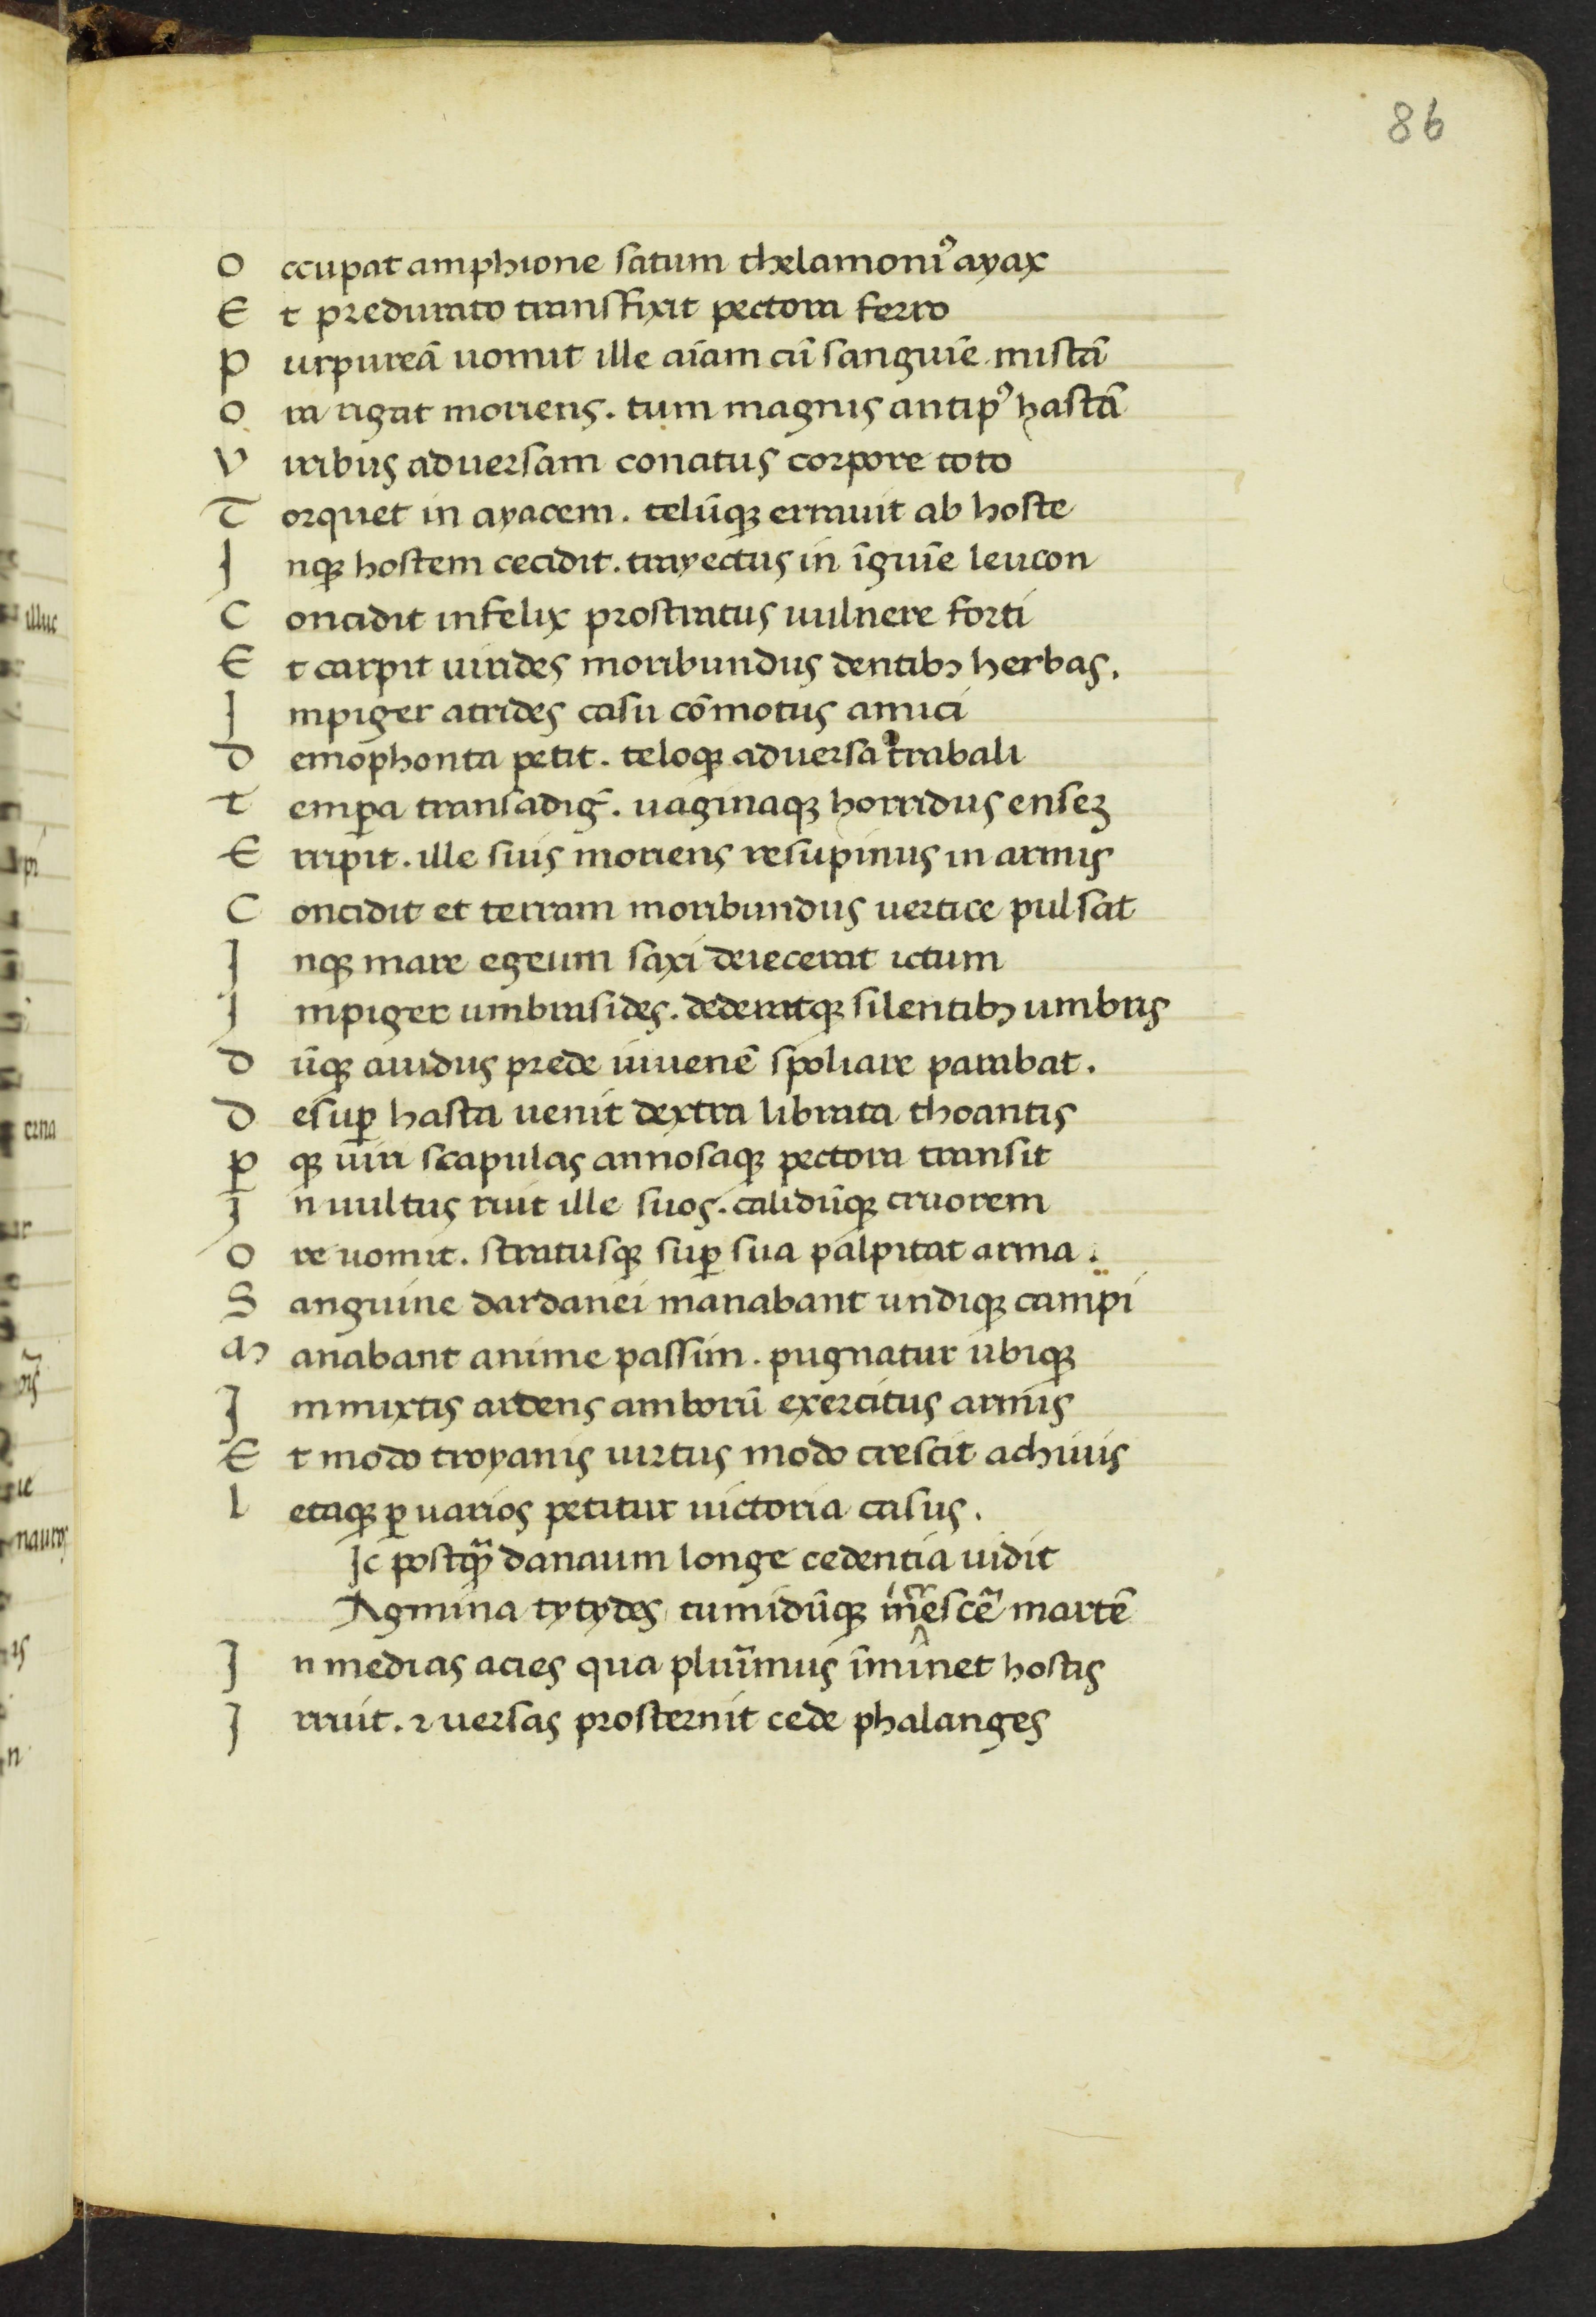 86
O ccupat amphione satum thelamoniꝰ ayax
E t predurato transfixit pectora ferro
P urpureā uomit ille aīam cū sanguīe mistā
O ra rigat moriens. tum magnis antipꝰ hastā
V iribus aduersam conatus corpore toto
T orquet in ayacem. telūqꝫ errauit ab hoste
I nqꝫ hostem cecidit. trayectus in īguīe leucon
C oncidit infelix prostratus uulnere forti
E t carpit uirides moribundus dentibꝫ herbas.
I mpiger atrides casu cōmotus amici
D emophonta petit. teloqꝫ aduersa trabali
T emꝑa transadig̃. uaginaqꝫ horridus enseꝫ
E rripit. ille suis moriens resupinus in armis
C oncidit et terram moribundus uertice pulsat
I nqꝫ mare egeum saxi deiecerat ictum
I mpiger umbrasides. dederatqꝫ silentibꝫ umbris
D ūqꝫ auidus prede iuuenē spoliare parabat.
D esuꝑ hasta uenit dextra librata thoantis
Ꝑ qꝫ uiri scapulas annosaqꝫ pectora transit
I n uultus ruit ille suos. calidūqꝫ cruorem
O re uomit. stratusqꝫ suꝑ sua palpitat arma.
S anguine dardanei manabant undiqꝫ campi
M anabant anime passim. pugnatur ubiqꝫ
I mmixtis ardens amborū exercitus armis
E t modo troyanis uirtus modo crescit achiuis
L etaqꝫ ꝑ uarios petitur uictoria casus.
Ic postqᷓ danaum longe cedentia uidit
Agmina tytydes tumidūqꝫ martē
I n medias acies qua plurīmus īminet hostis
I rruit. ⁊ uersas prosternit cede phalanges